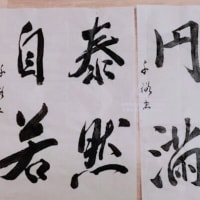 円満
泰然
自若